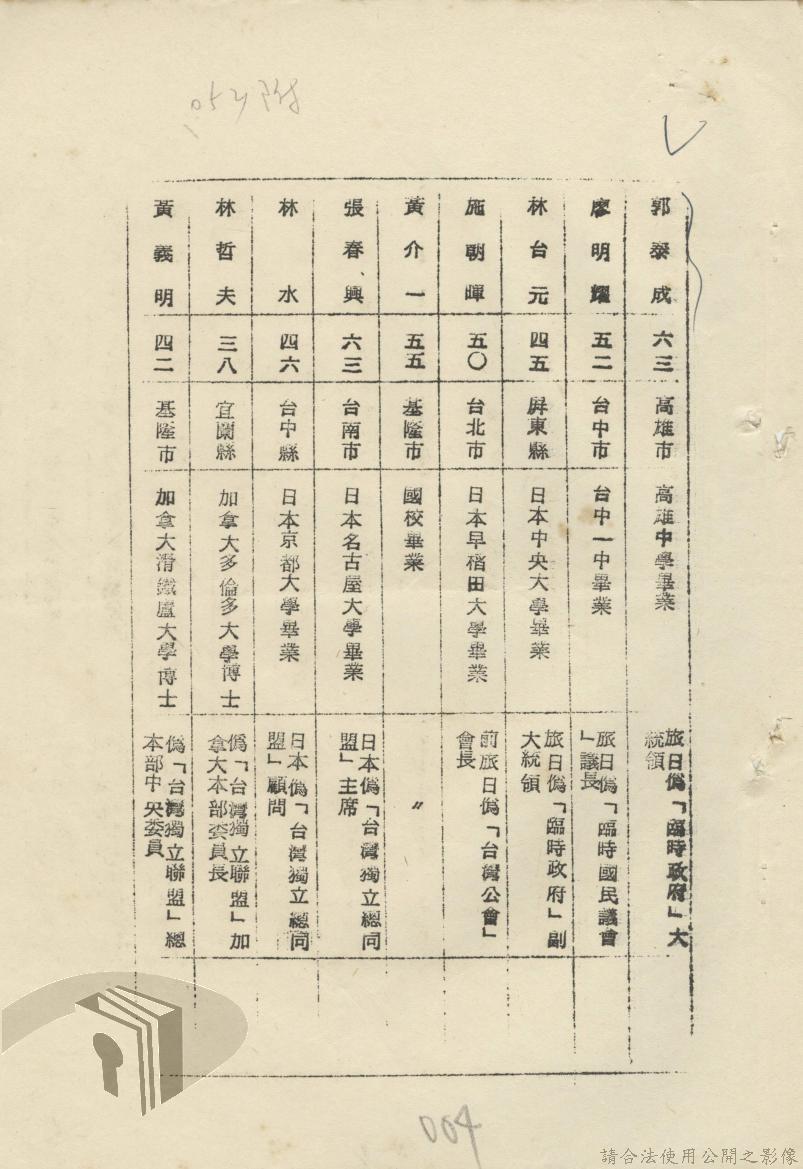 附
郭泰成 六三 高雄市 高雄中學畢業 旅日僞「臨時政府」大
統領
廖明耀 五二 台中市 台中一中畢業 旅日僞「臨時國民議會
」議長
林台元 四五 屏東縣 日本中央大學畢業 旅日僞「臨時政府」副
大統領
施朝暉 五〇 台北市 日本早稻田大學畢業 前旅日僞「台灣公會」
會長
黃介一 五五 基隆市 國校畢業 〃
張春興 六三 台南市 日本名古屋大學畢業 日本僞「台灣獨立總同
盟」主席
林水 四六 台中縣 日本京都大學畢業 日本僞「台灣獨立總同
盟」顧問
林哲夫 三八 宜蘭縣 加拿大多倫多大學博士 僞「台灣獨立聯盟」加
拿大本部委員長
黃義明 四二 基隆市 加拿大滑鐵盧大學博士 僞「台灣獨立聯盟」總
本部中央委員
004
請合法使用公開之影像